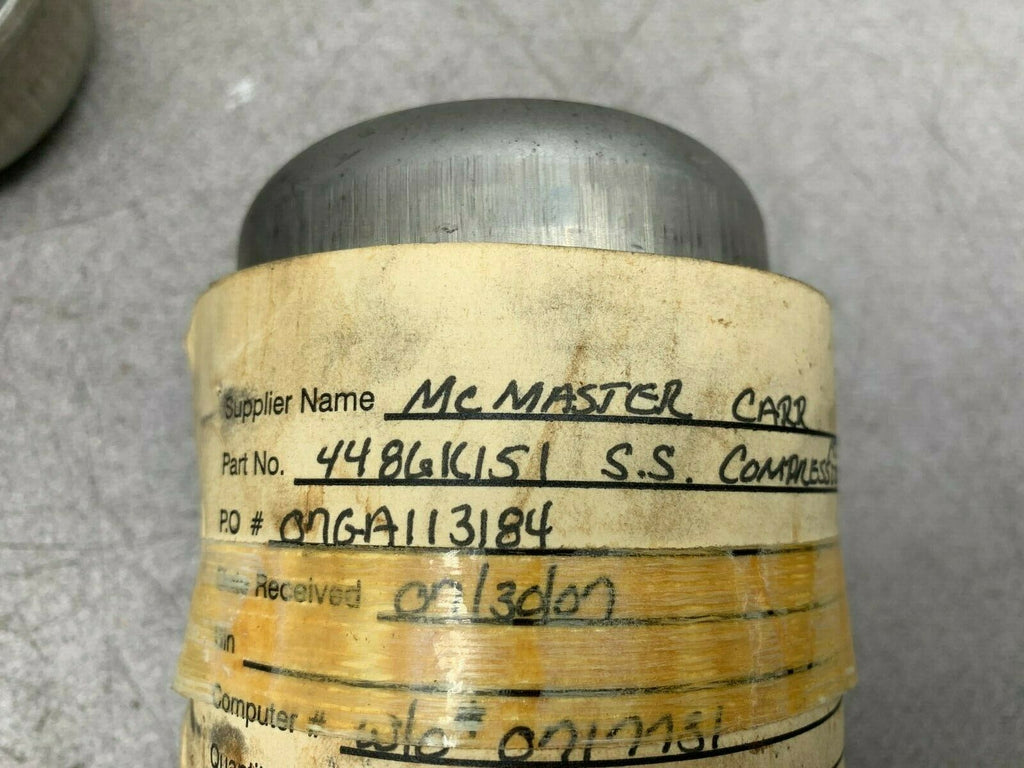 Supplier Name MCMASTER CARR
Part No. 4486K151 S.S. COMPRESS
P.O # 07GA113184
Date Received 07/30/07
Computer # W/O# 0717731